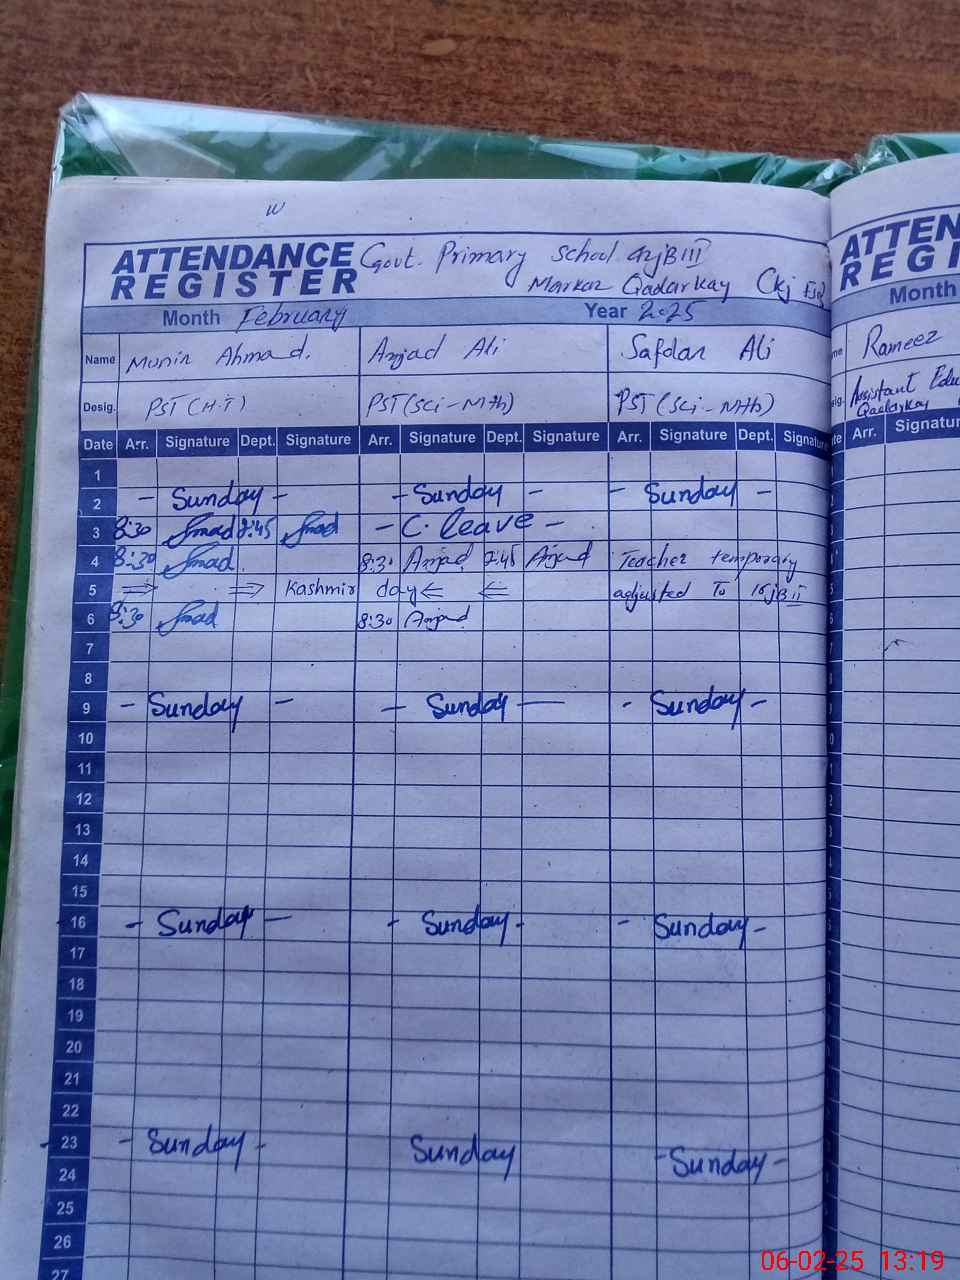 ATTENDANCE REGISTER
Govt. Primary School
Markaz Qadar Kay Ckj
Month February Year 2025
Name Munir Ahmad. Amjad Ali Safdar Ali
Desig. PST (H.T) PST (Sci-Mth) PST (Sci-Mth)
Date Arr. Signature Dept. Signature Arr. Signature Dept. Signature Arr. Signature Dept. Signature
1
2 - Sunday - - Sunday - - Sunday -
3 8:30 2:45 - C. leave -
4 8:30 8:30 Amjad 2:45 Amjad Teacher temporary
5 ⇒ ⇒ Kashmir day ⇐ ⇐ adjusted To
6 8:30 8:30 Amjad
7
8
9 - Sunday - - Sunday - - Sunday -
10
11
12
13
14
15
16 - Sunday - - Sunday - - Sunday -
17
18
19
20
21
22
23 - Sunday - Sunday - Sunday -
24
25
26
27
ATTEN
REGI
Month
Rameez
Assistant Edu
Qadarkay
Arr. Signatur
06-02-25 13:19